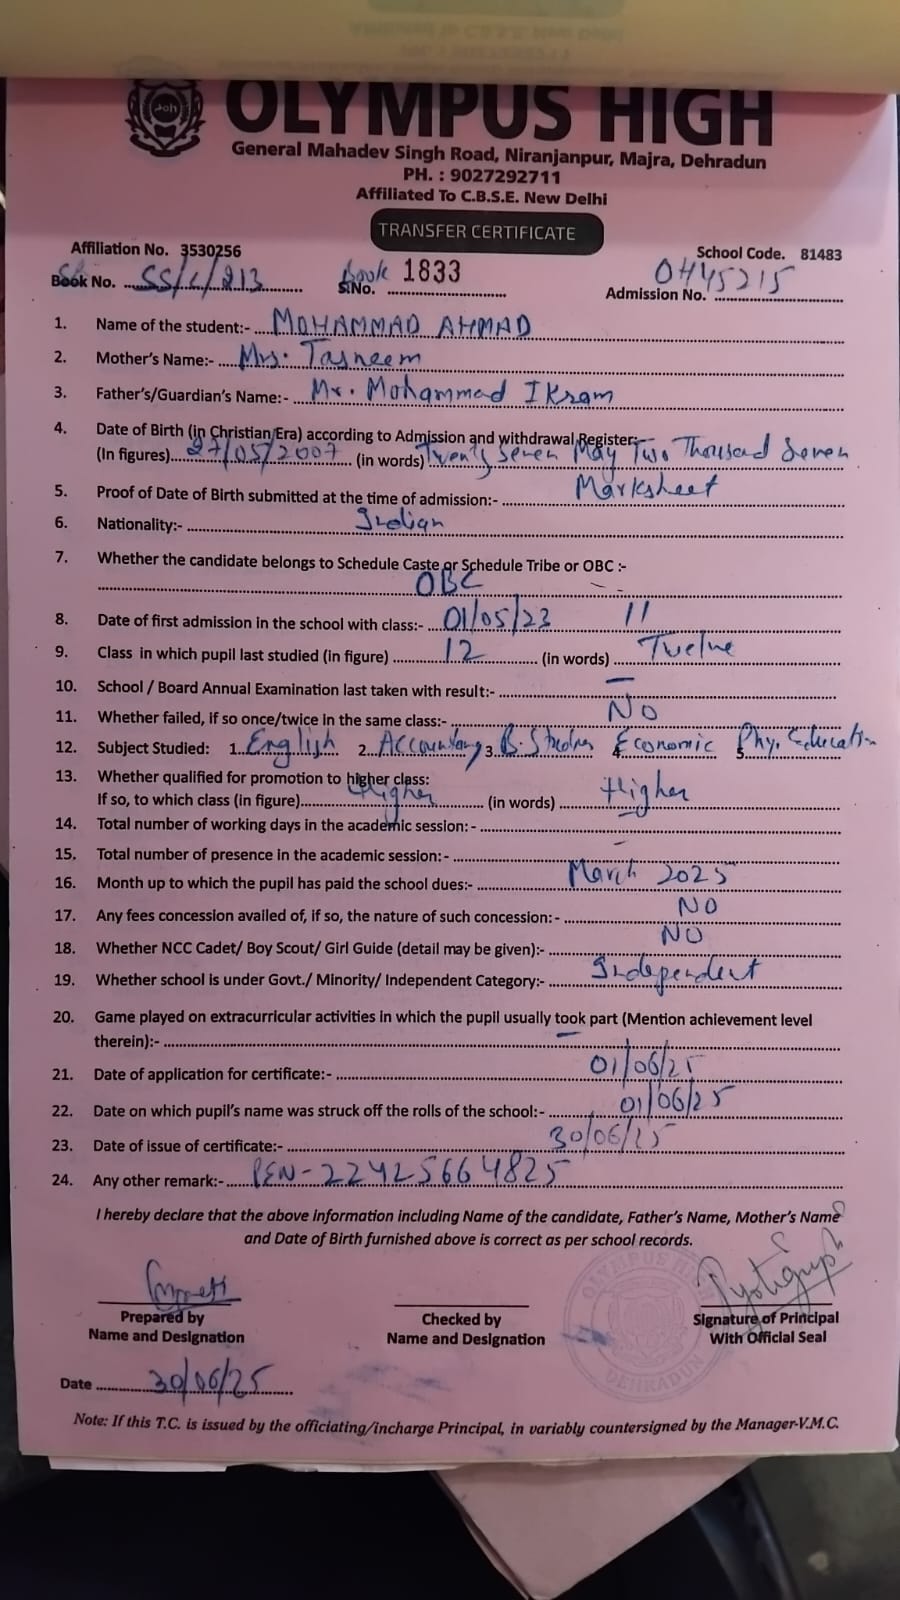 OLYMPUS HIGH
General Mahadev Singh Road, Niranjanpur, Majra, Dehradun
PH. : 9027292711
Affiliated To C.B.S.E. New Delhi
TRANSFER CERTIFICATE
Affiliation No. 3530256 School Code. 81483
Book No. SS/C/213 S.No. Book 1833 Admission No. 0445215
1. Name of the student:- MOHAMMAD AHMAD
2. Mother's Name:- Mrs. Tasneem
3. Father's/Guardian's Name:- Mr. Mohammad IKram
4. Date of Birth (in Christian Era) according to Admission and withdrawal Register:
(In figures) 27/05/2007 (in words) Twenty Seven May Two Thousand Seven
5. Proof of Date of Birth submitted at the time of admission:- Marksheet
6. Nationality:- Indian
7. Whether the candidate belongs to Schedule Caste or Schedule Tribe or OBC :-
OBC
8. Date of first admission in the school with class:- 01/05/23 11
9. Class in which pupil last studied (in figure) 12 (in words) Twelve
10. School / Board Annual Examination last taken with result:- —
11. Whether failed, if so once/twice in the same class:- NO
12. Subject Studied: 1. English 2. Accountancy 3. B. Studies 4. Economic 5. Phy. Education
13. Whether qualified for promotion to higher class:
If so, to which class (in figure) Higher (in words) Higher
14. Total number of working days in the academic session: - —
15. Total number of presence in the academic session: - —
16. Month up to which the pupil has paid the school dues:- March 2025
17. Any fees concession availed of, if so, the nature of such concession:- NO
18. Whether NCC Cadet/ Boy Scout/ Girl Guide (detail may be given):- NO
19. Whether school is under Govt./ Minority/ Independent Category:- Independent
20. Game played on extracurricular activities in which the pupil usually took part (Mention achievement level
therein):- —
21. Date of application for certificate:- 01/06/25
22. Date on which pupil's name was struck off the rolls of the school:- 01/06/25
23. Date of issue of certificate:- 30/06/25
24. Any other remark:- PEN-22425664825
I hereby declare that the above information including Name of the candidate, Father's Name, Mother's Name
and Date of Birth furnished above is correct as per school records.
Prepared by Checked by Signature of Principal
Name and Designation Name and Designation With Official Seal
OLYMPUS HIGH
DEHRADUN
Date 30/06/25
Note: If this T.C. is issued by the officiating/incharge Principal, in variably countersigned by the Manager-V.M.C.